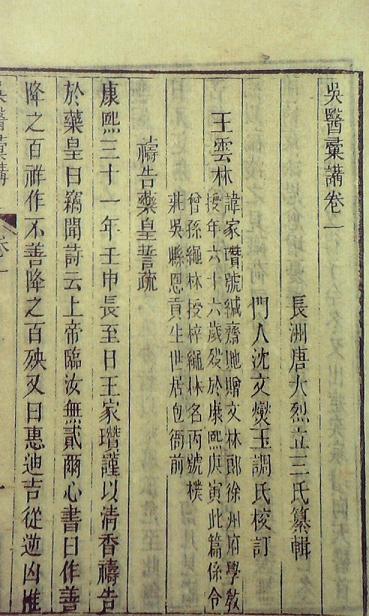 吳醫彙講卷一
長洲唐大烈立三氏纂輯
門人沈文燮玉調氏校訂
王雲林
諱家瓚號緘齋貤贈文林郎徐州府學教
授年六十六歲歿於康熙庚寅此篇係令
曾孫繩林授梓繩林名丙號樸
莊吳縣恩貢生世居包衙前
禱告藥皇誓疏
康熙三十一年壬申長至日王家瓚謹以清香禱告
於藥皇曰竊聞詩云上帝臨汝無貳爾心書曰作善
降之百祥作不善降之百殃又曰惠迪吉從逆凶惟
吳醫彙講 卷一